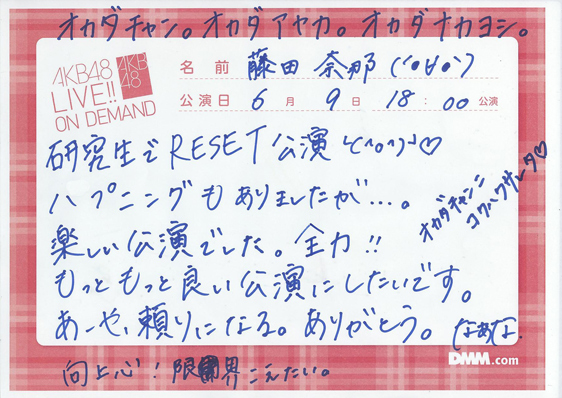 オカダチャン。オカダアヤカ。オカダナカヨシ。
AKB48
LIVE!!
ON DEMAND
AKB
48
名前 藤田 奈那 (°∀°)
公演日 6月 9日 18:00 公演
研究生でRESET公演\(^o^)/♡
ハプニングもありましたが…。
楽しい公演でした。全力!!
もっともっと良い公演にしたいです。
あーや、頼りになる。ありがとう。
なぁな.
オカダチャンニ
向上心!限界こえたい。
DMM.com